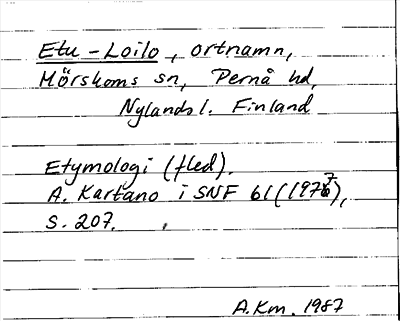 Etu-Loilo, ortnamn,
Mörskoms sn, Pernå hd,
Nylands l. Finland
Etymologi (fled).
A. Kartano i SNF 61 (1977),
s. 207.
A.Km. 1987